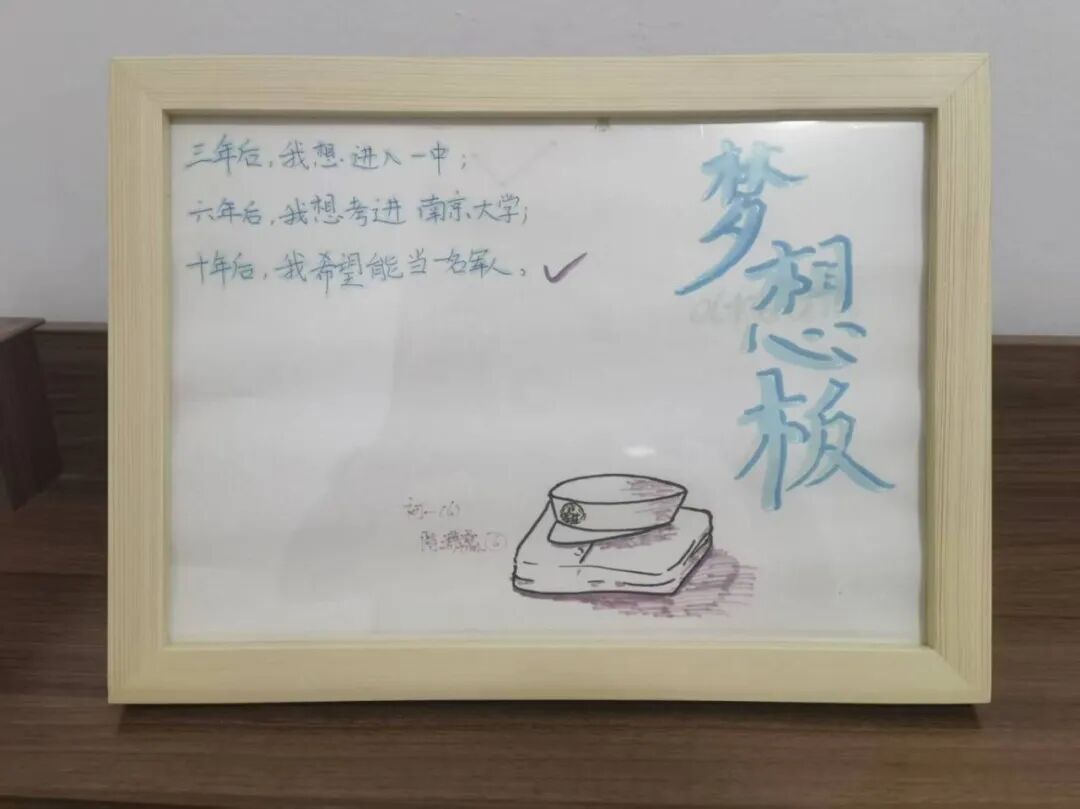 三年后，我想进入一中；
六年后，我想考进 南京大学；
十年后，我希望能当一名军人。
梦想板
初一(6)